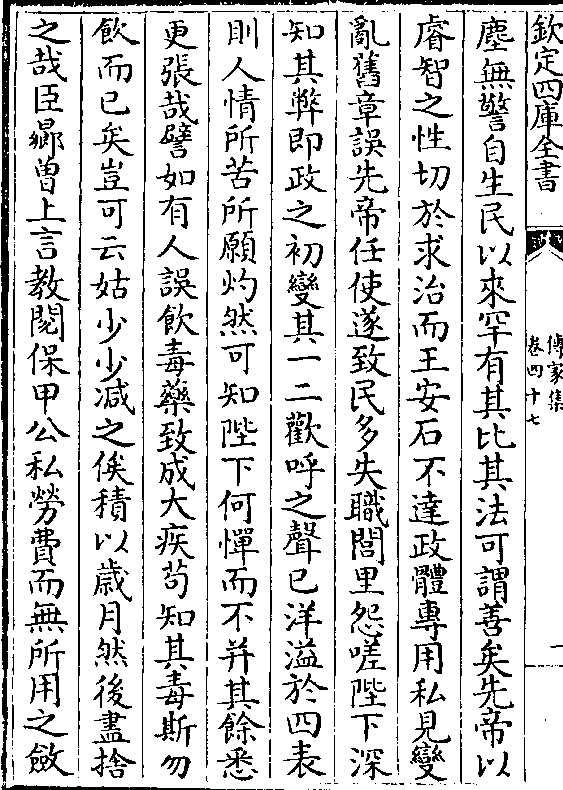 欽定四庫全書
傳家集
卷四十七
一
塵無警自生民以來罕有其比其法可謂善矣先帝以
睿智之性切於求治而王安石不達政體專用私見變
亂舊章誤先帝任使遂致民多失職閭里怨嗟陛下深
知其弊即政之初變其一二歡呼之聲已洋溢於四表
則人情所苦所願灼然可知陛下何憚而不并其餘悉
更張哉譬如有人誤飲毒藥致成大疾苟知其毒斯勿
飲而已矣豈可云姑少少減之俟積以歲月然後盡捨
之哉臣曏曾上言教閱保甲公私勞費而無所用之斂